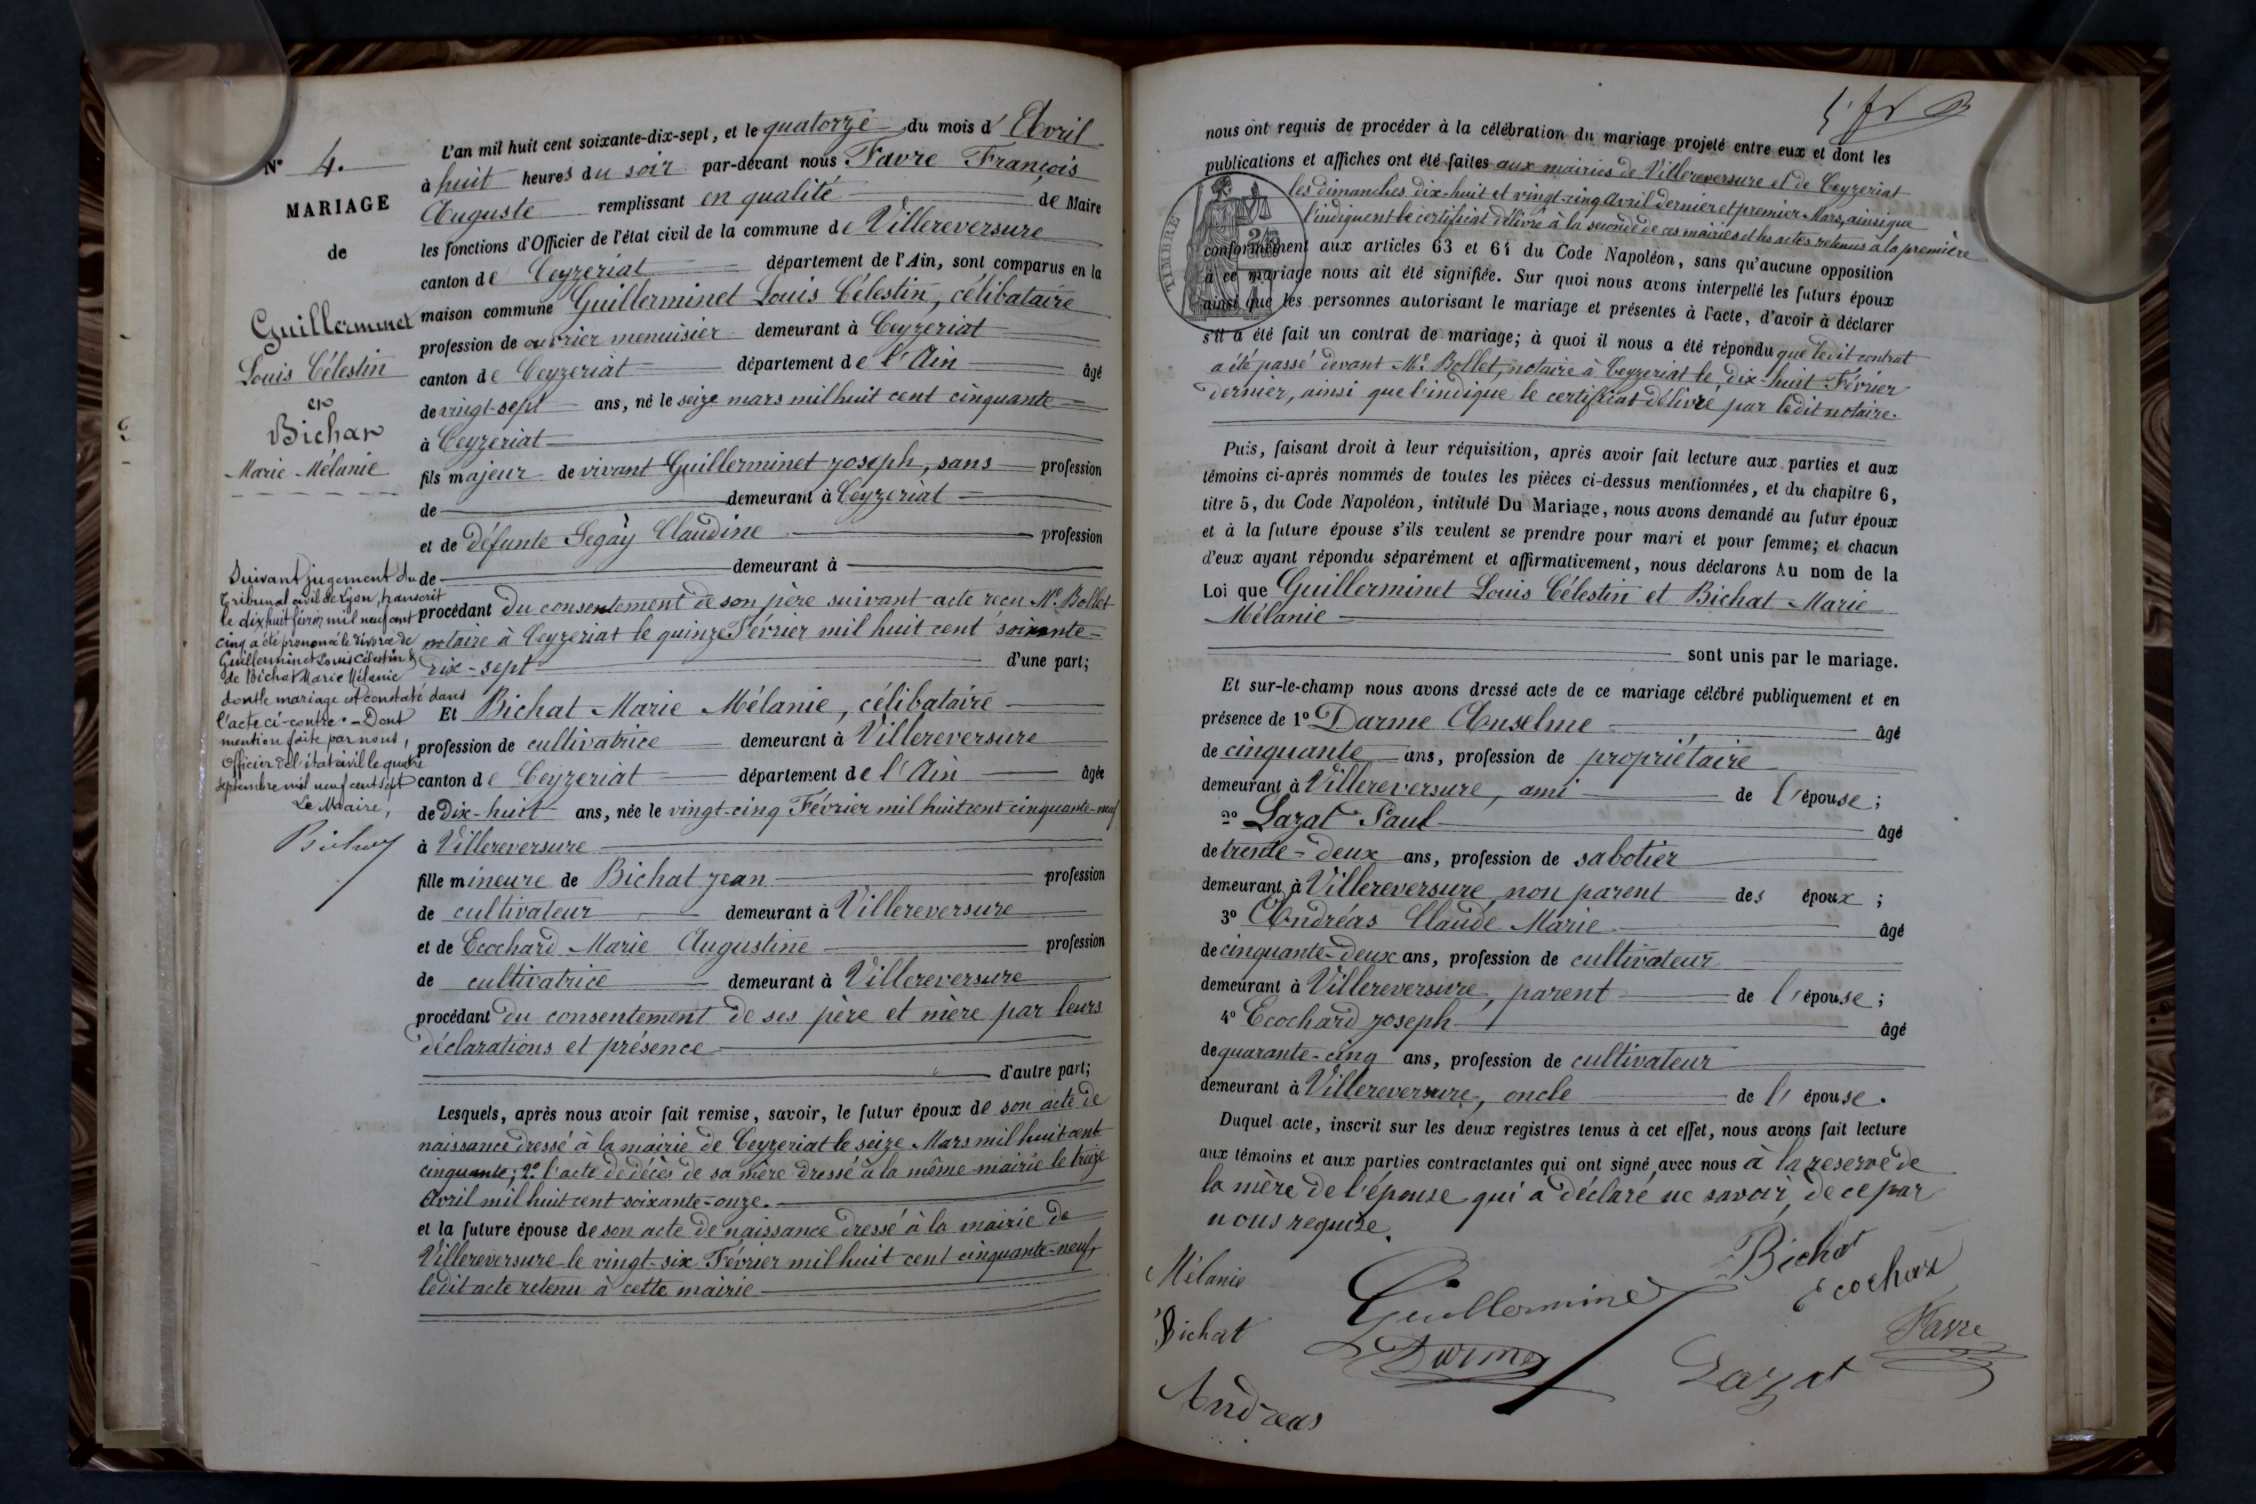 N° 4.
MARIAGE
de
Guillerminet
Louis Célestin
et
Bichat
Marie Mélanie
Suivant jugement du
Tribunal civil de Lyon, transcrit
le dix huit février mil neuf cent
cinq a été prononcé le divorce de
Guillerminet Louis Célestin &
de Bichat Marie Mélanie
dont le mariage est constaté dans
l'acte ci-contre. - Dont
mention faite par nous,
Officier de l'état civil le quatre
septembre mil neuf cent sept
Le Maire,
L'an mil huit cent soixante-dix-sept, et le quatorze du mois d'Avril
à huit heures du soir par-devant nous Favre François
Auguste remplissant en qualité de Maire
les fonctions d'Officier de l'état civil de la commune de Villereversure
canton de Ceyzeriat département de l'Ain, sont comparus en la
maison commune Guillerminet Louis Célestin, célibataire
profession de ouvrier menuisier demeurant à Ceyzeriat
canton de Ceyzeriat département de l'Ain âgé
de vingt-sept ans, né le seize mars mil huit cent cinquante
à Ceyzeriat
fils majeur de vivant Guillerminet Joseph, sans profession
de demeurant à Ceyzeriat
et de défunte Segay Claudine profession
de demeurant à
procédant du consentement de son père suivant acte reçu Me Bollet
notaire à Ceyzeriat le quinze Février mil huit cent soixante-
dix-sept d'une part;
Et Bichat Marie Mélanie, célibataire
profession de cultivatrice demeurant à Villereversure
canton de Ceyzeriat département de l'Ain âgée
de Dix-huit ans, née le vingt-cinq Février mil huit cent cinquante-neuf
à Villereversure
fille mineure de Bichat Jean profession
de cultivateur demeurant à Villereversure
et de Ecochard Marie Augustine profession
de cultivatrice demeurant à Villereversure
procédant du consentement de ses père et mère par leurs
déclarations et présence
d'autre part;
Lesquels, après nous avoir fait remise, savoir, le futur époux de son acte de
naissance dressé à la mairie de Ceyzeriat le seize Mars mil huit cent
cinquante; 2° l'acte de décès de sa mère dressé à la même mairie le treize
Avril mil huit cent soixante-onze.
et la future épouse de son acte de naissance dressé à la mairie de
Villereversure le vingt-six Février mil huit cent cinquante-neuf,
ledit acte retenu à cette mairie
nous ont requis de procéder à la célébration du mariage projeté entre eux et dont les
publications et affiches ont été faites aux mairies de Villereversure et de Ceyzeriat
les dimanches dix-huit et vingt-cinq Avril dernier et premier Mars, ainsi que
l'indiquent le certificat délivré à la seconde de ces mairies et les actes retenus à la première
TIMBRE
conformément aux articles 63 et 64 du Code Napoléon, sans qu'aucune opposition
à ce mariage nous ait été signifiée. Sur quoi nous avons interpellé les futurs époux
ainsi que les personnes autorisant le mariage et présentes à l'acte, d'avoir à déclarer
s'il a été fait un contrat de mariage; à quoi il nous a été répondu que ledit contrat
a été passé devant Me Bollet, notaire à Ceyzeriat le dix-huit Février
dernier, ainsi que l'indique le certificat délivré par ledit notaire.
Puis, faisant droit à leur réquisition, après avoir fait lecture aux parties et aux
témoins ci-après nommés de toutes les pièces ci-dessus mentionnées, et du chapitre 6,
titre 5, du Code Napoléon, intitulé Du Mariage, nous avons demandé au futur époux
et à la future épouse s'ils veulent se prendre pour mari et pour femme; et chacun
d'eux ayant répondu séparément et affirmativement, nous déclarons Au nom de la
Loi que Guillerminet Louis Célestin et Bichat Marie
Mélanie
sont unis par le mariage.
Et sur-le-champ nous avons dressé acte de ce mariage célébré publiquement et en
présence de 1° Darme Anselme âgé
de cinquante ans, profession de propriétaire
demeurant à Villereversure, ami de l'épouse;
2° Lazat Paul âgé
de trente-deux ans, profession de sabotier
demeurant à Villereversure, non parent des époux;
3° Andréas Claude Marie âgé
de cinquante-deux ans, profession de cultivateur
demeurant à Villereversure, parent de l'épouse;
4° Ecochard Joseph âgé
de quarante-cinq ans, profession de cultivateur
demeurant à Villereversure, oncle de l'épouse.
Duquel acte, inscrit sur les deux registres tenus à cet effet, nous avons fait lecture
aux témoins et aux parties contractantes qui ont signé avec nous à la réserve de
la mère de l'épouse qui a déclaré ne savoir, de ce par
nous requise.
Mélanie
Bichat
Guillerminet
Bichat
Ecochard
Darme
Lazat
Favre
Andreas